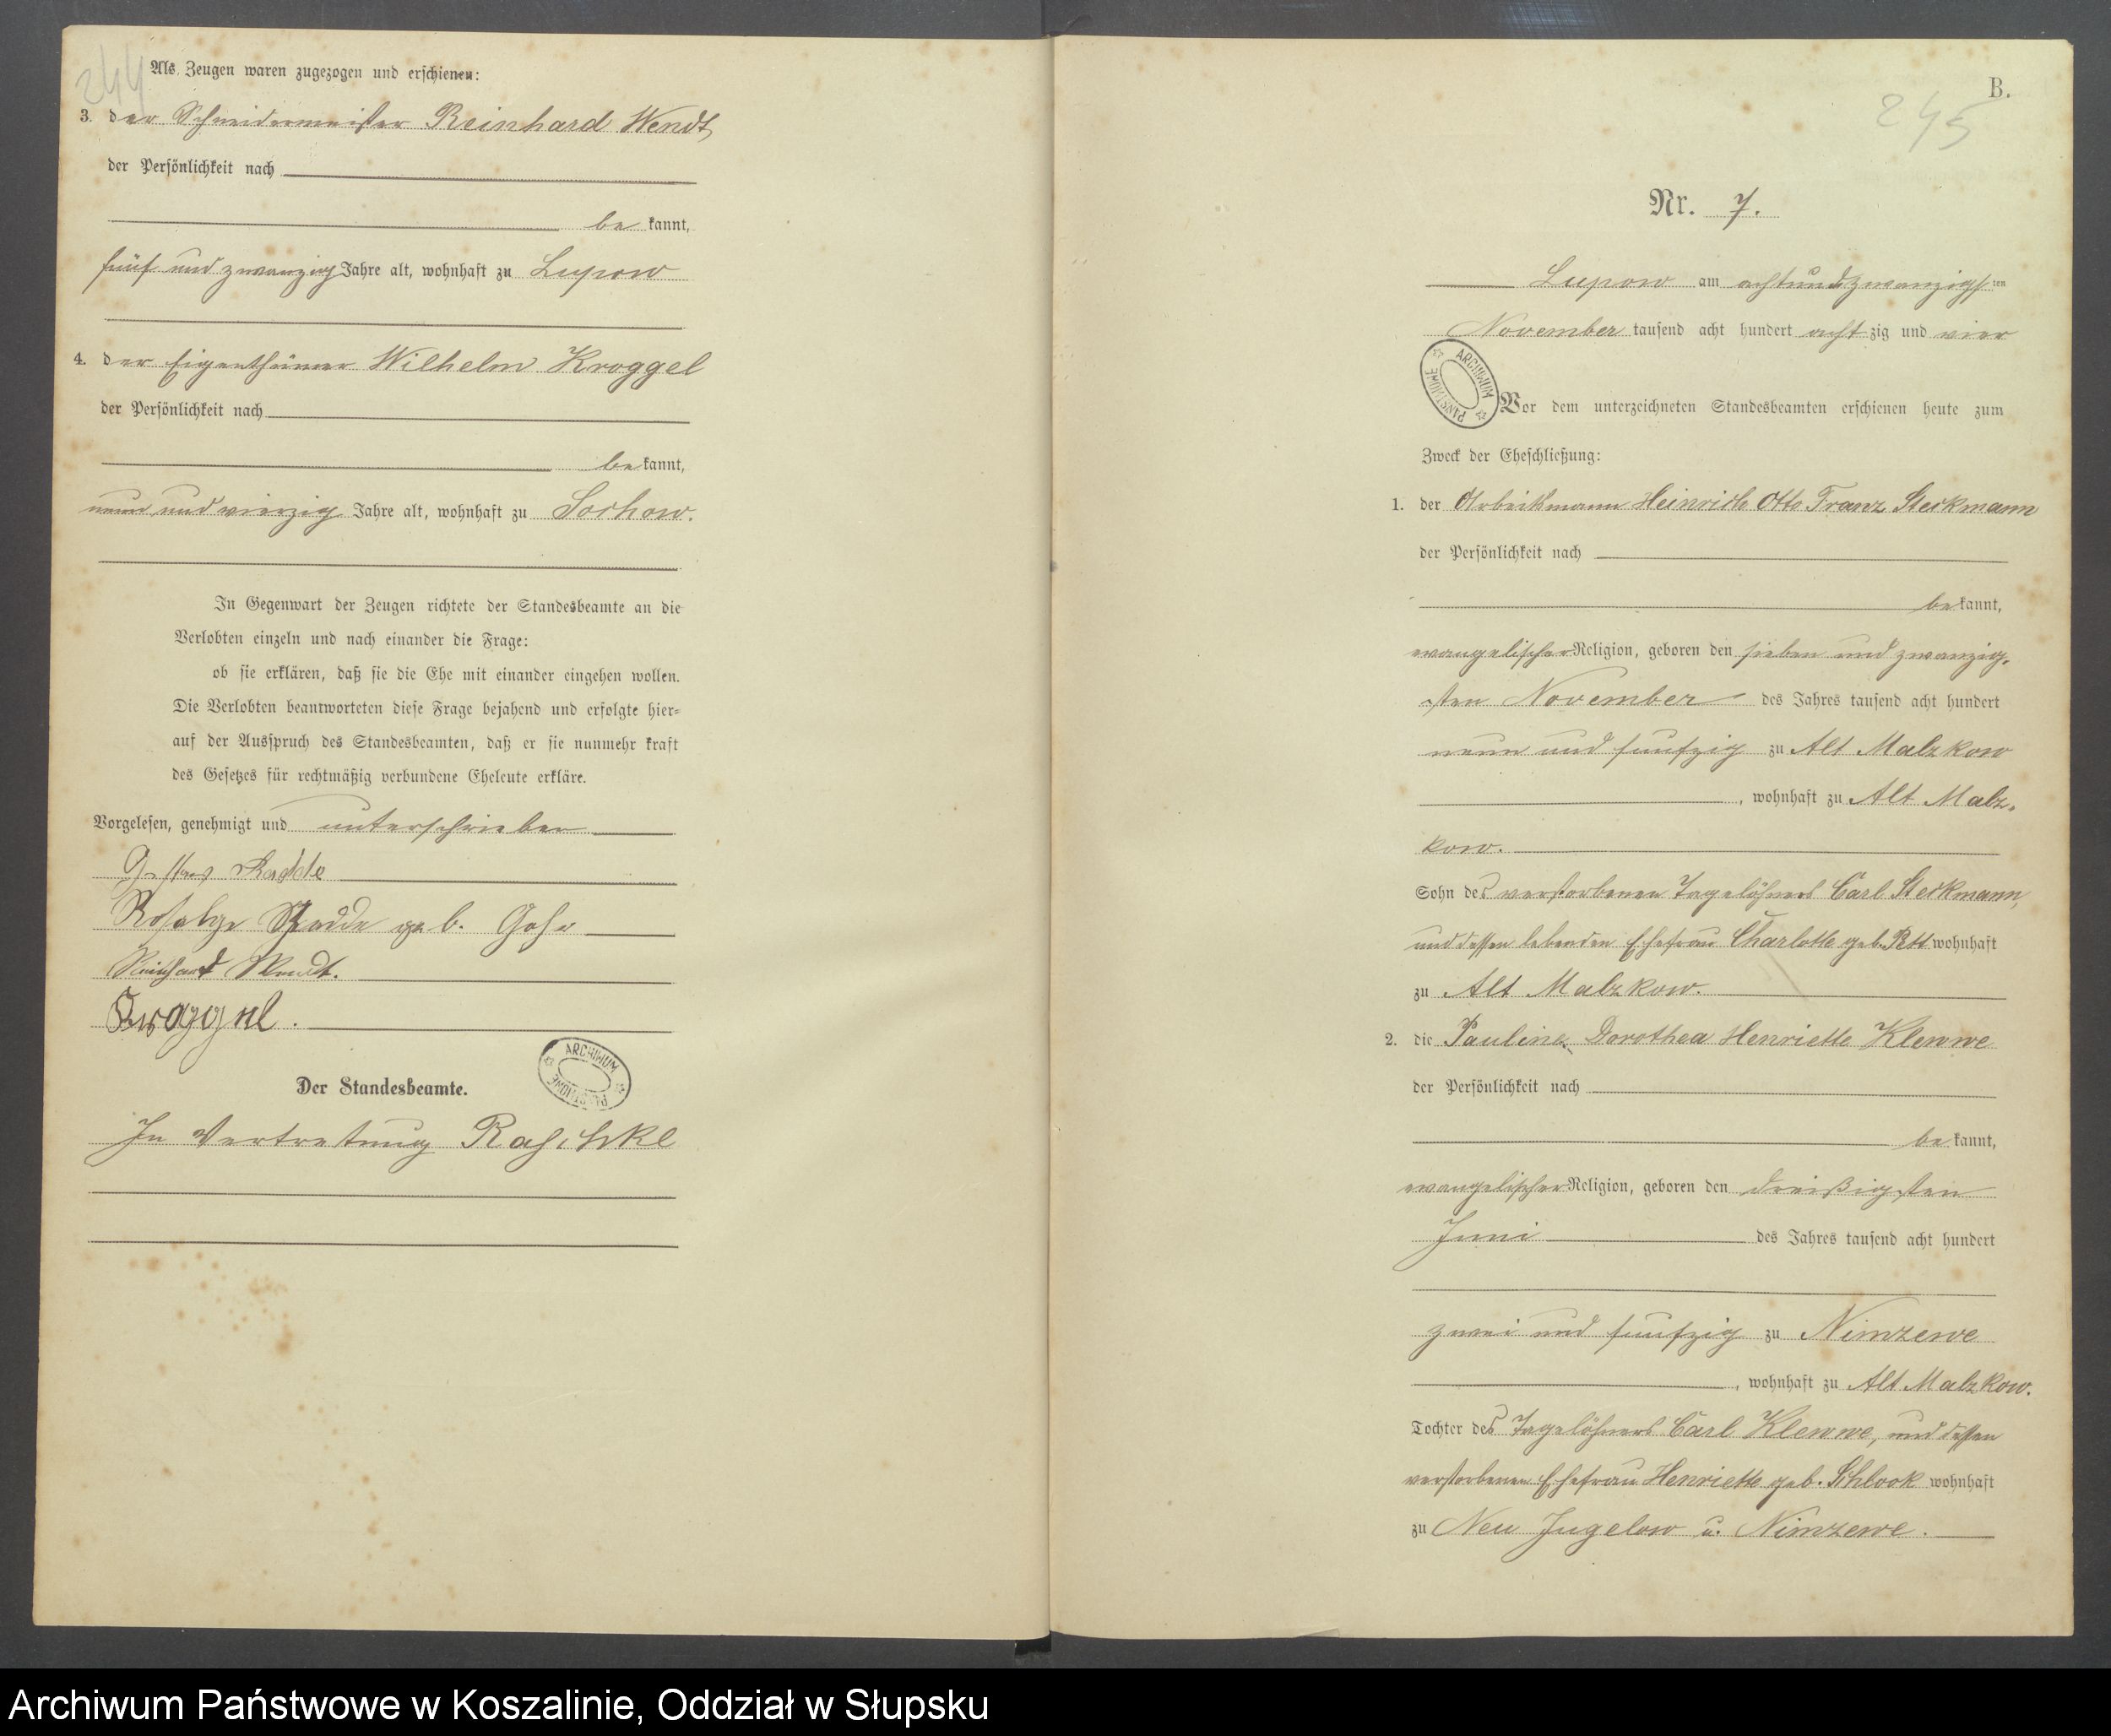 244
Als Zeugen waren zugezogen und erschienen:
3. der Schneidermeister Reinhard Wendt,
der Persönlichkeit nach
be kannt,
fünf und zwanzig Jahre alt, wohnhaft zu Lupow
4. der Eigenthümer Wilhelm Kroggel
der Persönlichkeit nach
be kannt,
neun und vierzig Jahre alt, wohnhaft zu Sochow.
In Gegenwart der Zeugen richtete der Standesbeamte an die
Verlobten einzeln und nach einander die Frage:
ob sie erklären, daß sie die Ehe mit einander eingehen wollen.
Die Verlobten beantworteten diese Frage bejahend und erfolgte hier-
auf der Ausspruch des Standesbeamten, daß er sie nunmehr kraft
des Gesetzes für rechtmäßig verbundene Eheleute erkläre.
Vorgelesen, genehmigt und unterschrieben
Radde
Radde geb.
Reinhard Wendt.
Kroggel.
ARCHIWUM PAŃSTWOWE
Der Standesbeamte.
In Vertretung Raschke
B.
245
Nr. 7.
Lupow am achtundzwanzigsten
November tausend acht hundert achtzig und vier
ARCHIWUM PAŃSTWOWE
Vor dem unterzeichneten Standesbeamten erschienen heute zum
Zweck der Eheschließung:
1. der Arbeitsmann Heinrich Otto Franz Steckmann
der Persönlichkeit nach
be kannt,
evangelischer Religion, geboren den sieben und zwanzig-
sten November des Jahres tausend acht hundert
neun und fünfzig zu Alt Malzkow
, wohnhaft zu Alt Malz-
kow.
Sohn des verstorbenen Tagelöhners Carl Steckmann,
und dessen lebenden Ehefrau Charlotte geb. wohnhaft
zu Alt Malzkow.
2. die Pauline Dorothea Henriette Klewwe
der Persönlichkeit nach
be kannt,
evangelischer Religion, geboren den dreißigsten
Juni des Jahres tausend acht hundert
zwei und fünfzig zu Nimzewe
, wohnhaft zu Alt Malzkow.
Tochter des Tagelöhners Carl Klewwe, und dessen
verstorbenen Ehefrau Henriette geb. Schlook wohnhaft
zu Neu Jugelow u. Nimzewe.
Archiwum Państwowe w Koszalinie, Oddział w Słupsku